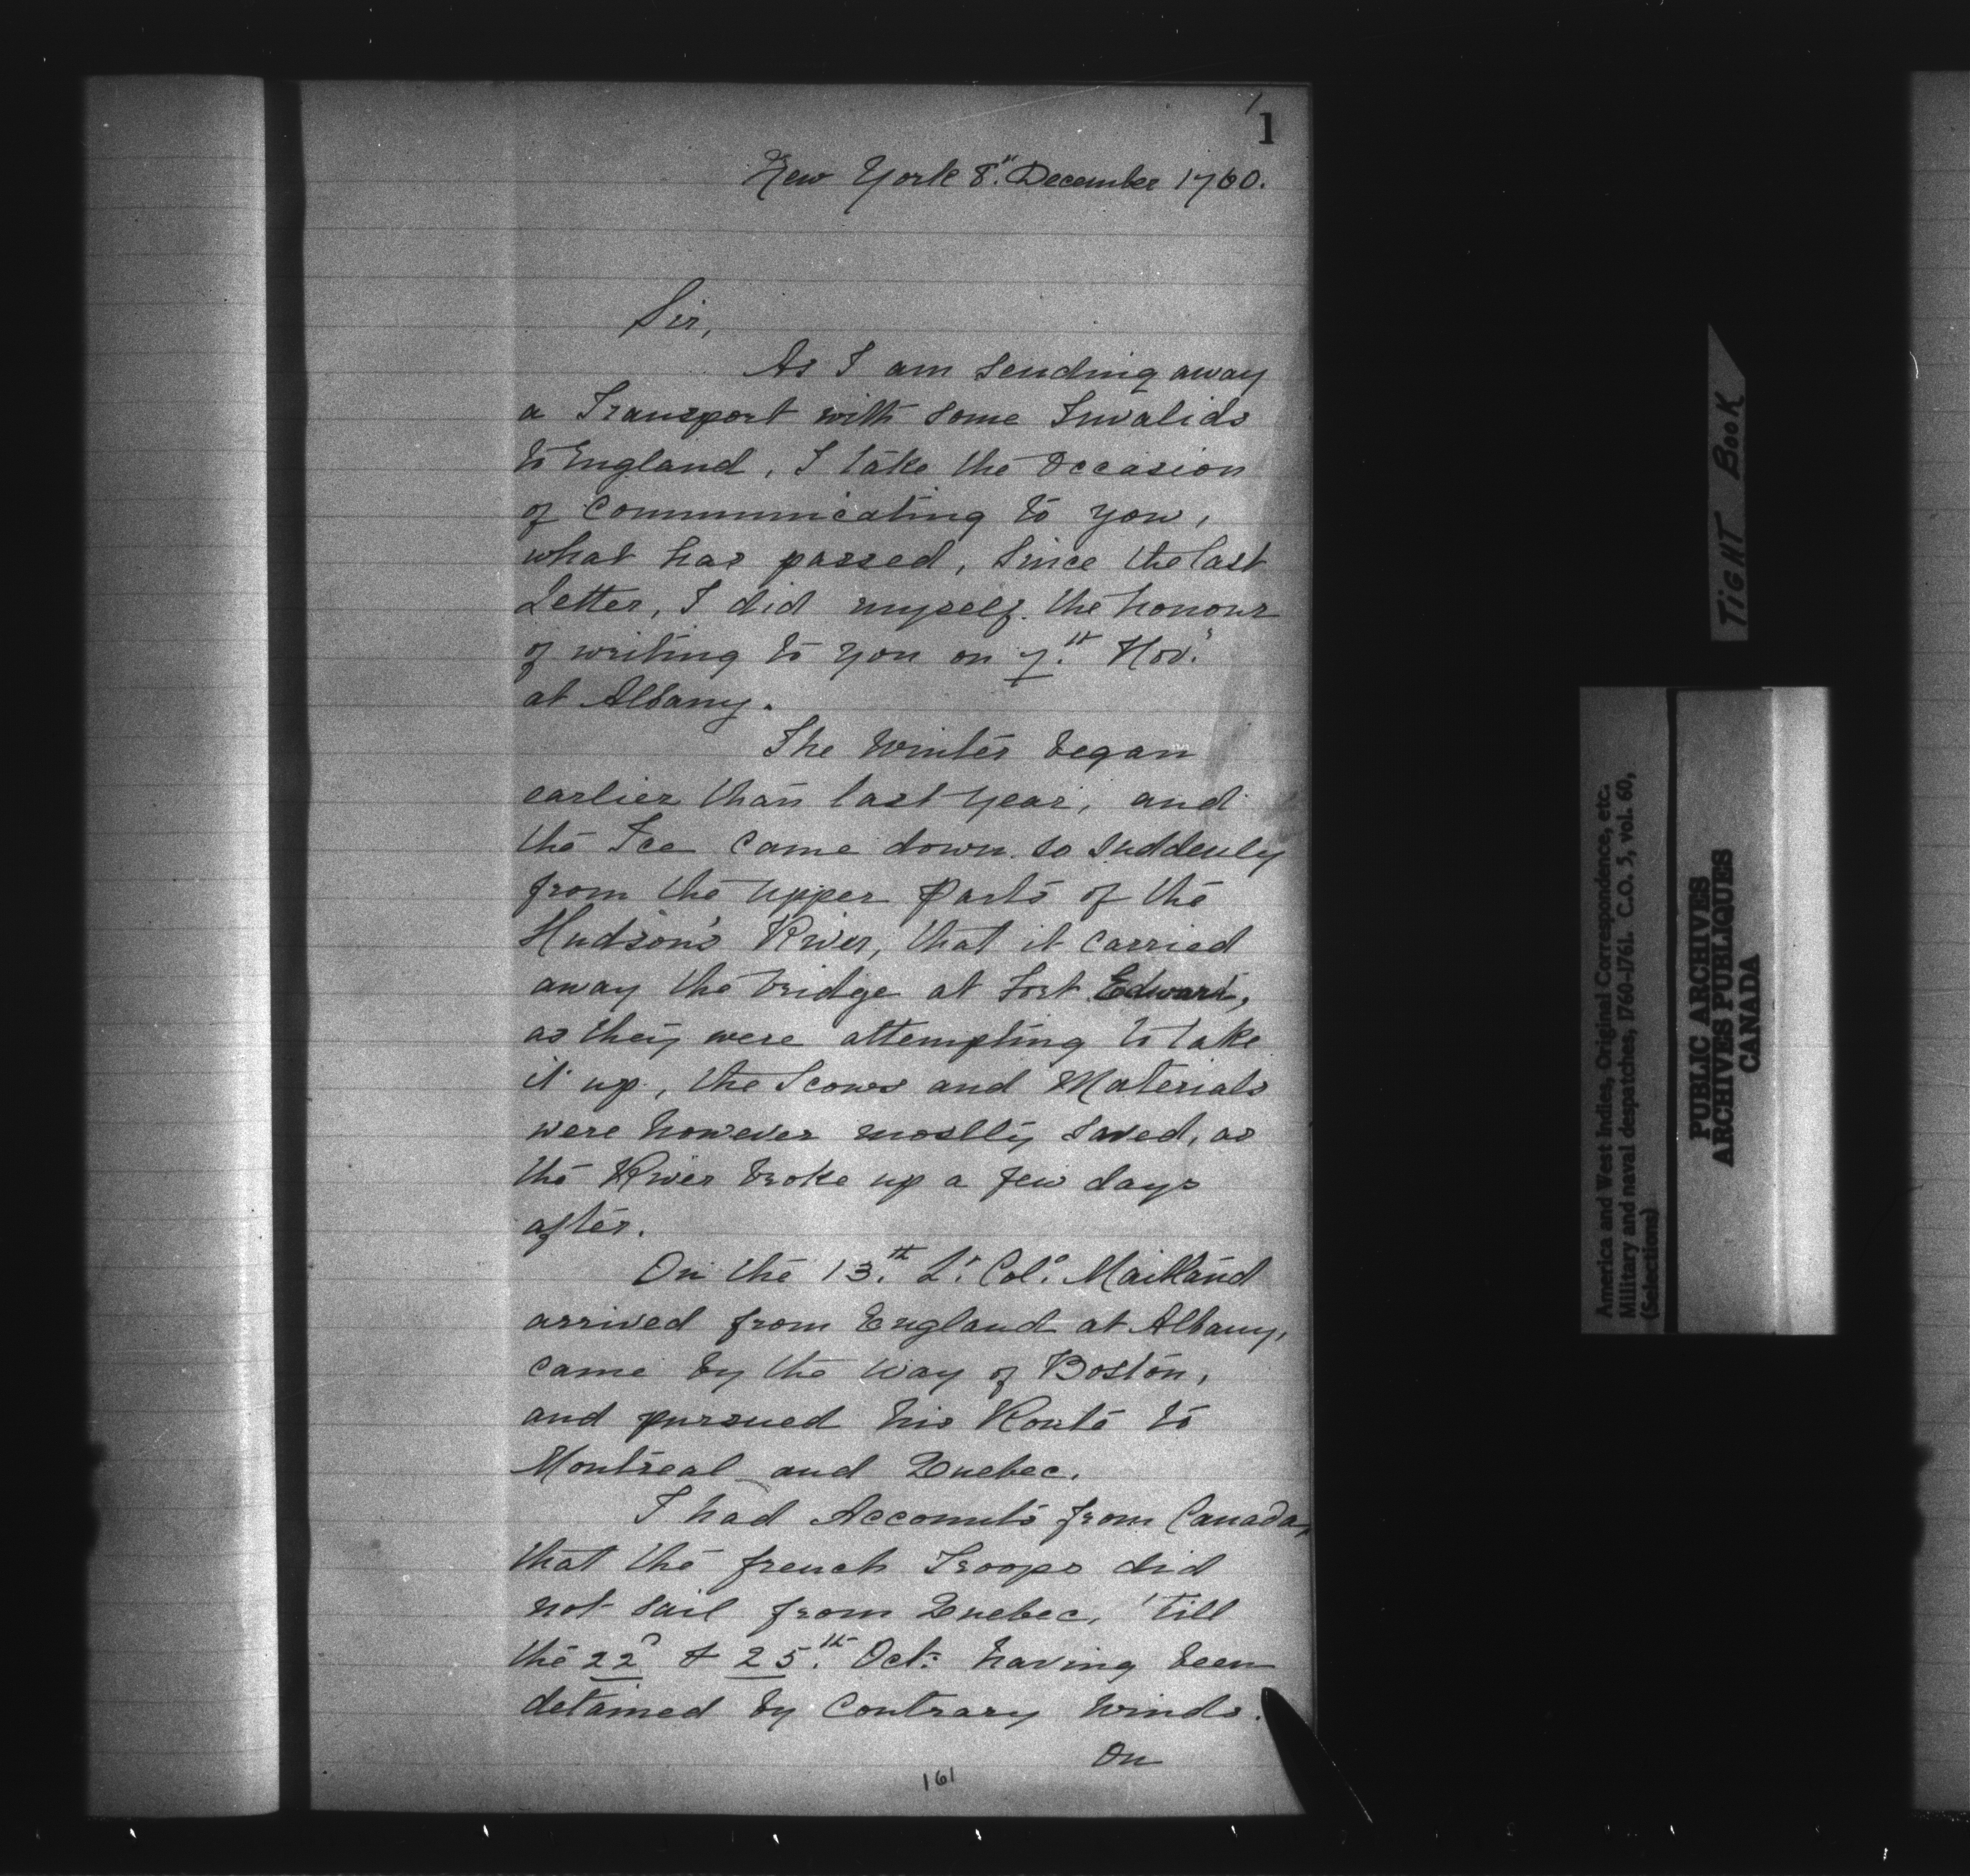 1
New York 8th. December 1760.
Sir,
As I am sending away
a Transport with some Invalids
to England, I take the Occasion
of Communicating to you,
what has passed, Since the last
Letter, I did myself the honour
of writing to you on 7.th Nov.r
at Albany.
The Winter began
earlier than last year, and
the Ice Came down so suddenly
from the upper Parts of the
Hudson's River, that it carried
away the bridge at Fort Edward,
as they were attempting to take
it up, the Scows and Materials
were however mostly saved, as
the River broke up a few days
after.
On the 13.th Lt. Col.o Maitland
arrived from England at Albany,
came by the way of Boston,
and pursued his Route to
Montreal and Quebec.
I had Accounts from Canada,
that the french Troops did
not sail from Quebec, 'till
the 22d & 25.th Oct: having been
detained by Contrary Winds.
On
161
TIGHT BOOK
America and West Indies, Original Correspondence, etc.
Military and naval despatches, 1760-1761. C.O. 5, vol. 60,
(Selections)
PUBLIC ARCHIVES
ARCHIVES PUBLIQUES
CANADA